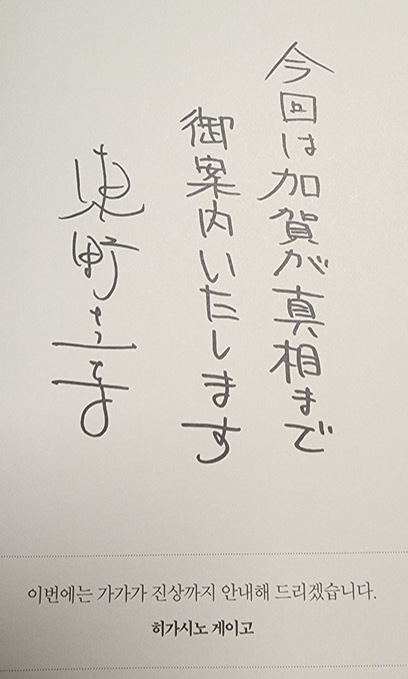 今回は加賀が真相まで
御案内いたします
東野圭吾
이번에는 가가가 진상까지 안내해 드리겠습니다.
히가시노 게이고